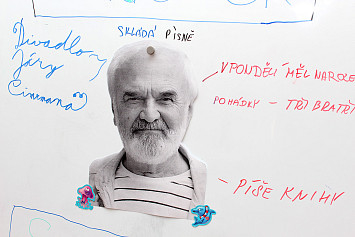 SKLÁDÁ PÍSNĚ
Divadlo
Járy
Cimrmana
V PONDĚLÍ MĚL NAROZE
POHÁDKY - TŘI BRATŘI
- PÍŠE KNIHY